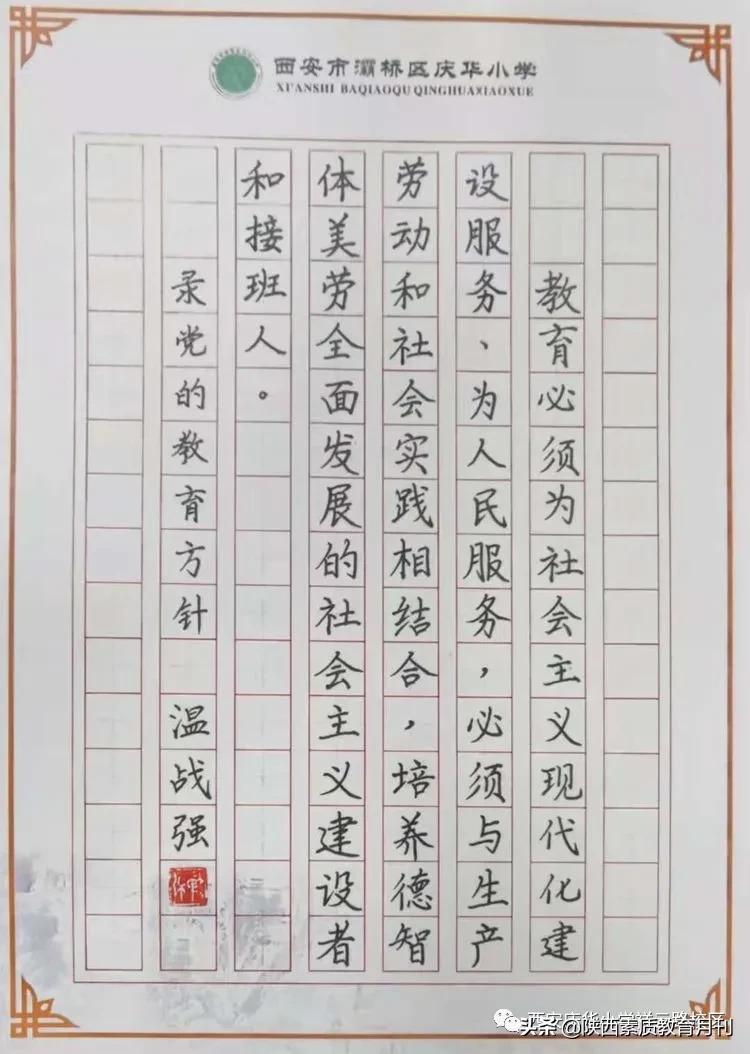 西安市灞桥区庆华小学
XI'ANSHI BAQIAOQU QINGHUAXIAOXUE
教育必须为社会主义现代化建
设服务、为人民服务，必须与生产
劳动和社会实践相结合，培养德智
体美劳全面发展的社会主义建设者
和接班人。
录党的教育方针 温战强
头条@陕西素质教育月刊